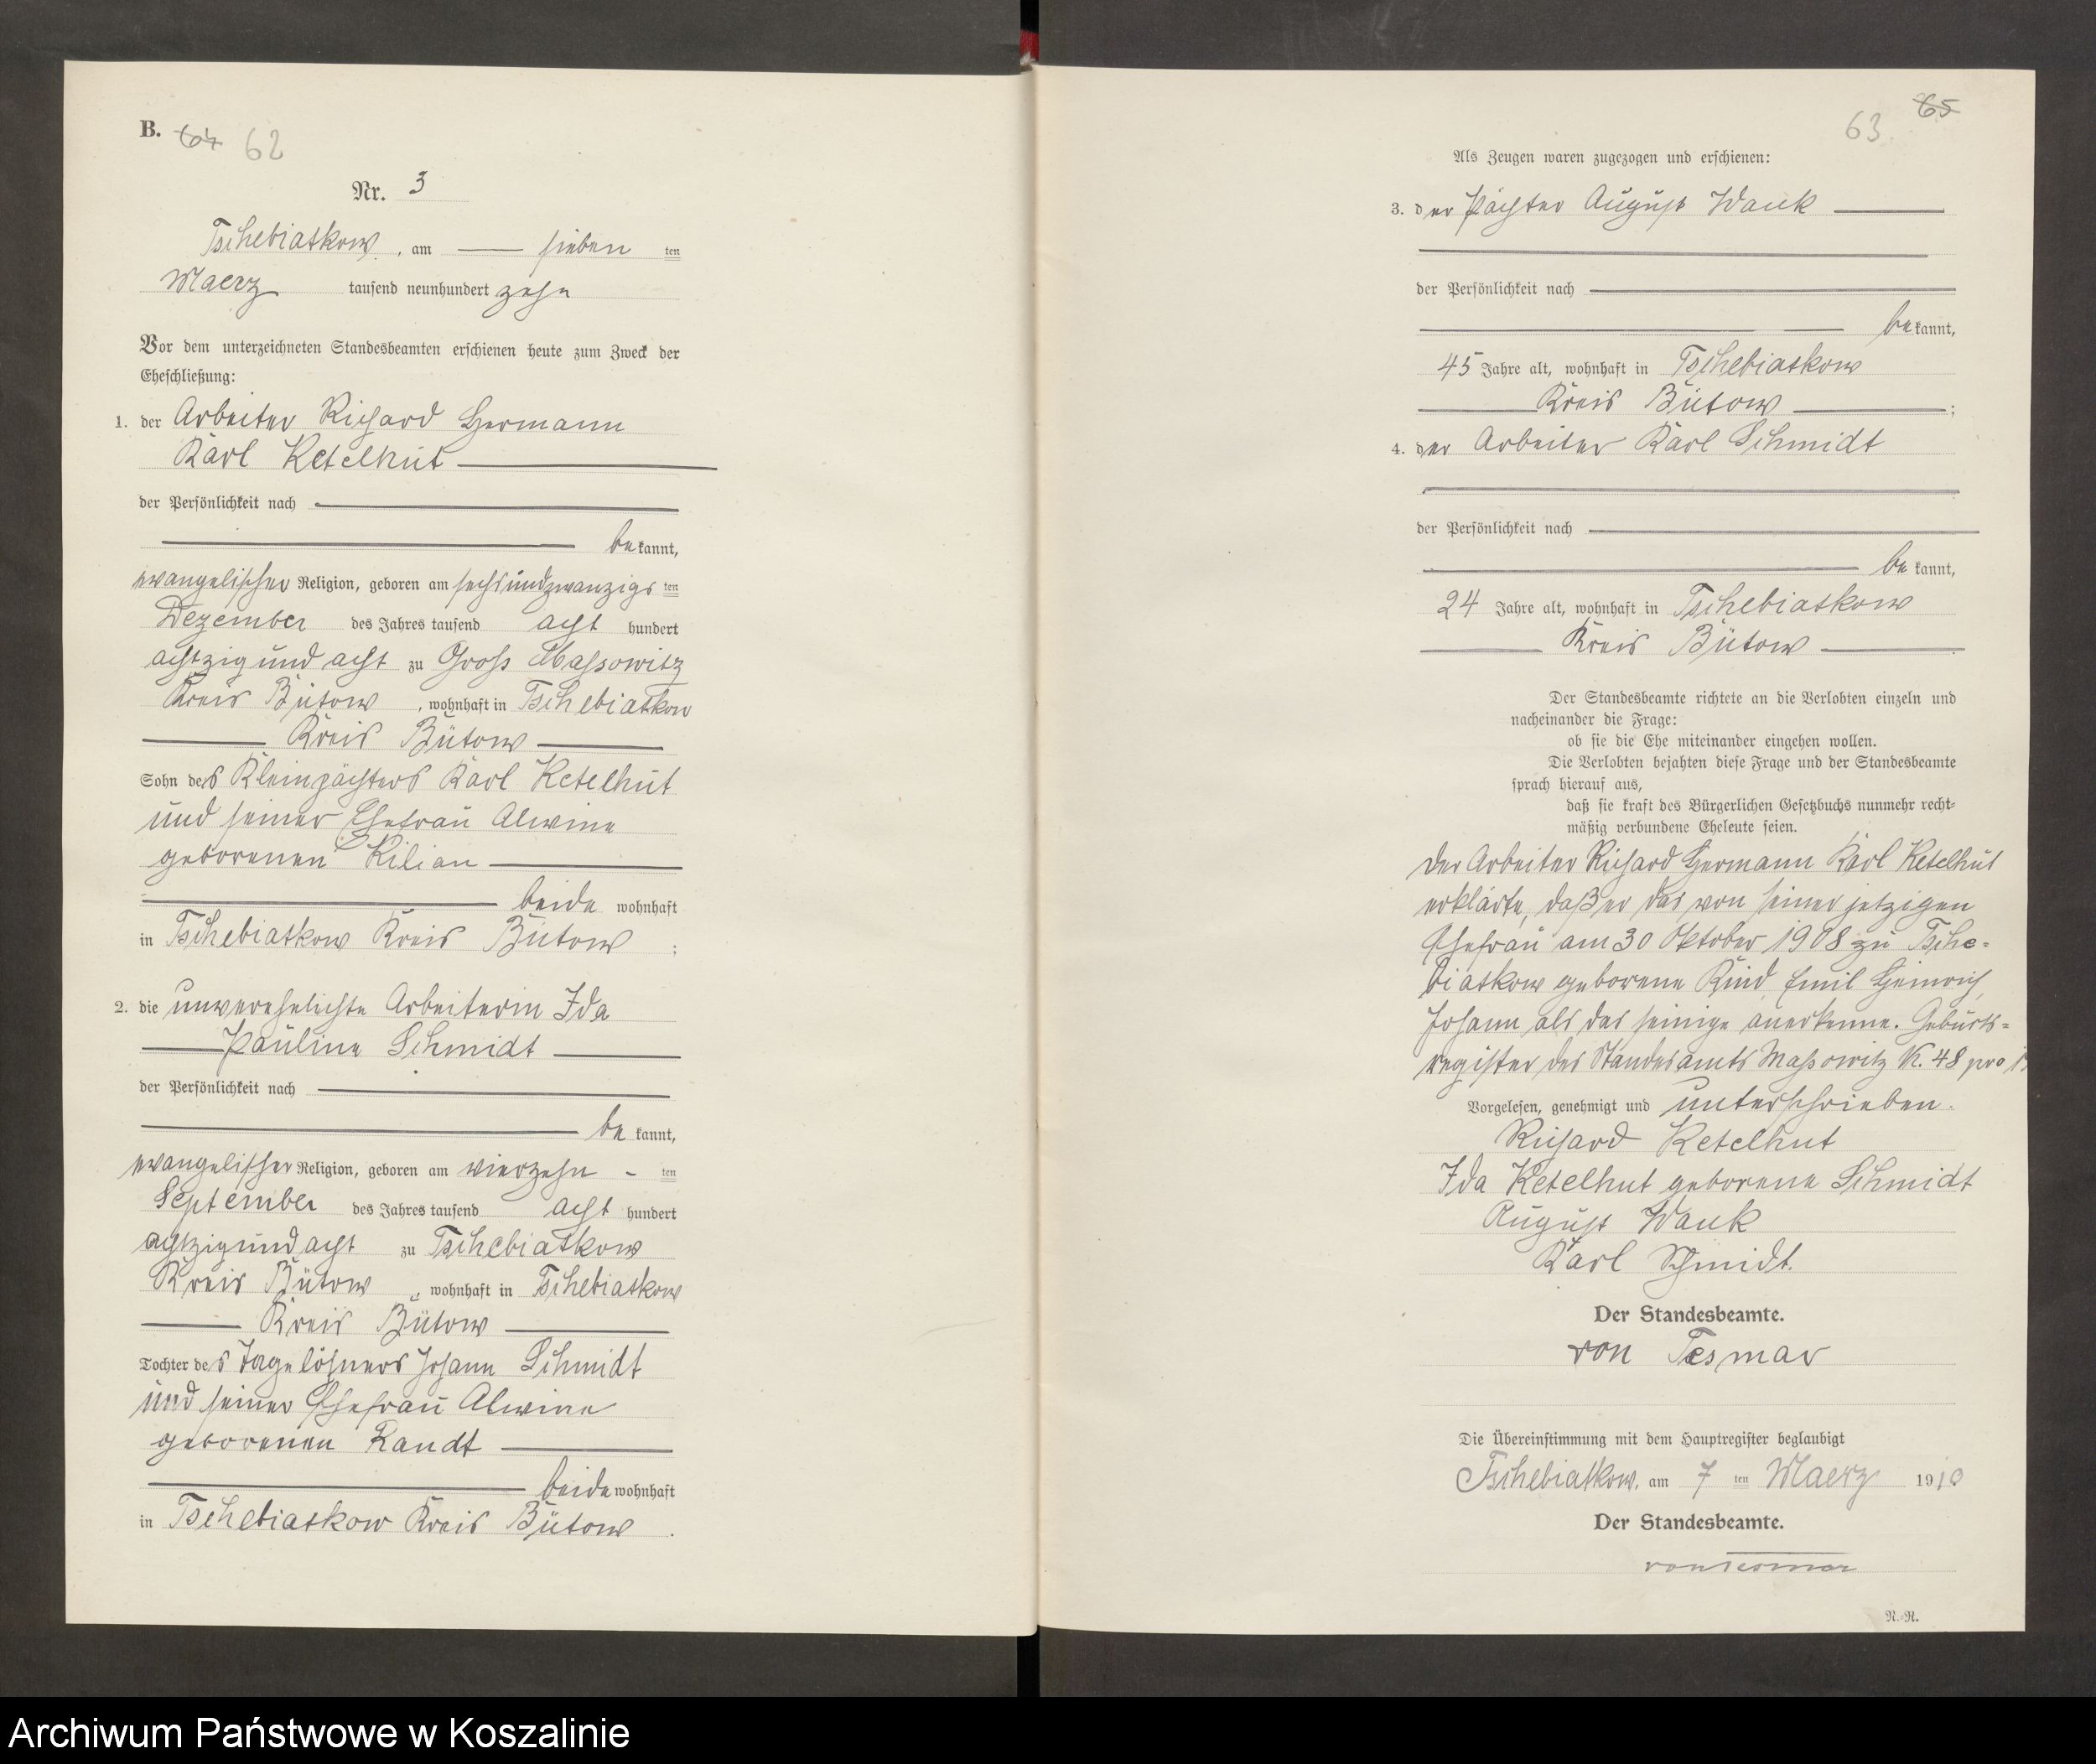 B. 64 62
Nr. 3
Tschebiatkow, am sieben ten
Maerz tausend neunhundert zehn
Vor dem unterzeichneten Standesbeamten erschienen heute zum Zweck der
Eheschließung:
1. der Arbeiter Richard Hermann
Karl Ketelhut
der Persönlichkeit nach
be kannt,
evangelischer Religion, geboren am sechsundzwanzigs ten
Dezember des Jahres tausend acht hundert
achtzig und acht zu Gross Massowitz
Kreis Bütow, wohnhaft in Tschebiatkow
Kreis Bütow
Sohn des Kleinpächters Karl Ketelhut
und seiner Ehefrau Alwine
geborenen Kilian
beide wohnhaft
in Tschebiatkow Kreis Bütow ;
2. die unverehelichte Arbeiterin Ida
Pauline Schmidt
der Persönlichkeit nach
be kannt,
evangelischer Religion, geboren am vierzehn - ten
September des Jahres tausend acht hundert
achtzig und acht zu Tschebiatkow
Kreis Bütow, wohnhaft in Tschebiatkow
Kreis Bütow
Tochter des Tagelöhners Johann Schmidt
und seiner Ehefrau Alwine
geborenen Randt
beide wohnhaft
in Tschebiatkow Kreis Bütow .
63 65
Als Zeugen waren zugezogen und erschienen:
3. der Pächter August Wauk
der Persönlichkeit nach
be kannt,
45 Jahre alt, wohnhaft in Tschebiatkow
Kreis Bütow ;
4. der Arbeiter Karl Schmidt
der Persönlichkeit nach
be kannt,
24 Jahre alt, wohnhaft in Tschebiatkow
Kreis Bütow
Der Standesbeamte richtete an die Verlobten einzeln und
nacheinander die Frage:
ob sie die Ehe miteinander eingehen wollen.
Die Verlobten bejahten diese Frage und der Standesbeamte
sprach hierauf aus,
daß sie kraft des Bürgerlichen Gesetzbuchs nunmehr recht=
mäßig verbundene Eheleute seien.
Der Arbeiter Richard Hermann Karl Ketelhut
erklärte, daß er das von seiner jetzigen
Ehefrau am 30 Oktober 1908 zu Tsche=
biatkow geborene Kind Emil Heinrich
Johann als das seinige anerkenne. Geburts=
register des Standesamts Massowitz N. 48 pro
Vorgelesen, genehmigt und unterschrieben.
Richard Ketelhut
Ida Ketelhut geborene Schmidt
August Wauk
Karl Schmidt.
Der Standesbeamte.
von Tesmar
Die Übereinstimmung mit dem Hauptregister beglaubigt
Tschebiatkow, am 7 ten Maerz 1910
Der Standesbeamte.
von Tesmar
N.-R.
Archiwum Państwowe w Koszalinie